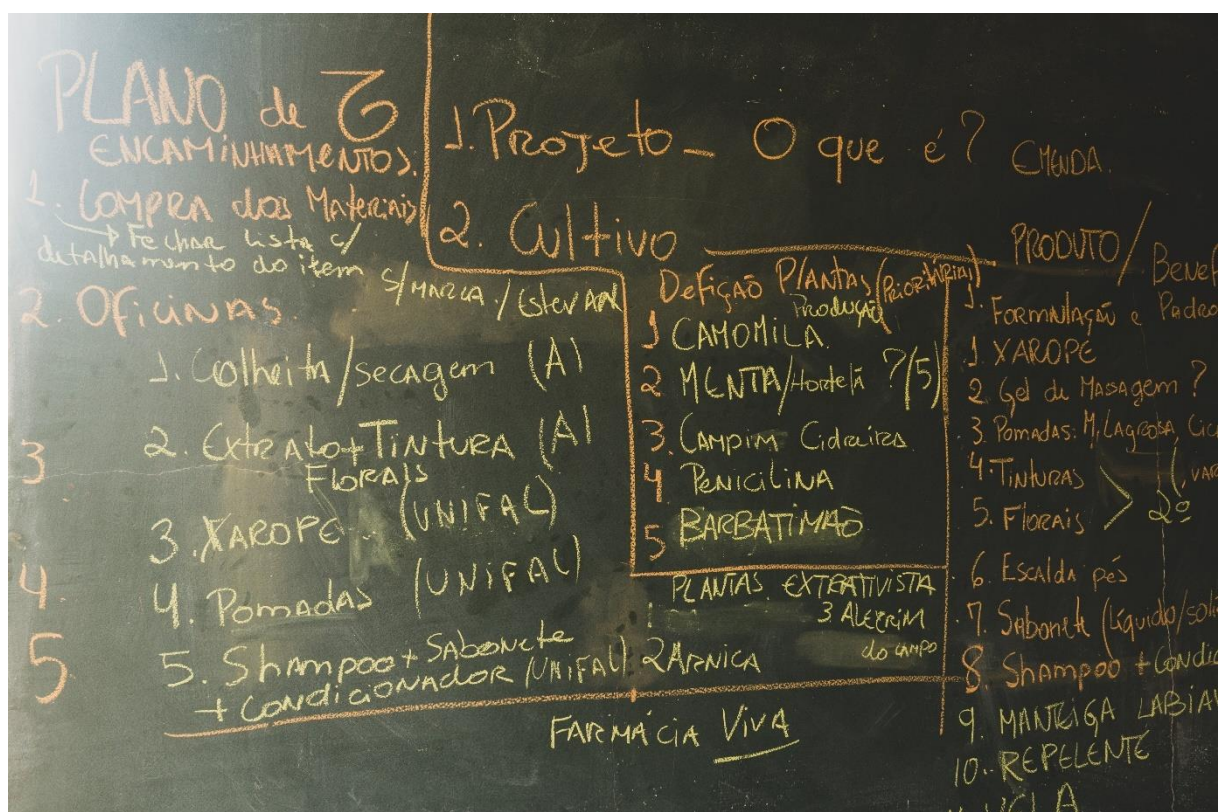 PLANO de
ENCAMINHAMENTOS.
1. COMPRA dos Materiais
Fechar lista c/
detalhamento do item
s/ MARCA. / Estevan
2. OFICINAS.
1. Colheita/secagem (A)
2. EXTRATO+TINTURA (A)
FLORAIS
3
3. XAROPE. (UNIFAL)
4. Pomadas (UNIFAL)
4.
5. Shampoo + SABONETE
+ CONDICIONADOR (UNIFAL)
5
1. Projeto - O que é?
EMENDA.
2. Cultivo
Defição PlAntas (PRIORITÁRIAS)
PRODUÇÃO
1 CAMOMILA.
2 MENTA/Hortelã ?/5)
3. CAMPIM Cidreira
4 PENICILINA
5 BARBATIMÃO
PLANTAS EXTRATIVISTA
3 ALECRIM
do campo
2 ARNICA
FARMÁCIA VIVA
PRODUTO/
Benef
1. FORMULAÇÃO e Padro
1. XAROPE
2. Gel de Massagem ?
3. Pomadas: M, LAGROSA, Cic
4. TINTURAS
5. Florais
2º
6. Escalda pés
7. Sabonete (líquido/soli
8 Shampoo + Condic
9 MANTEIGA LABIA
10. REPELENTE